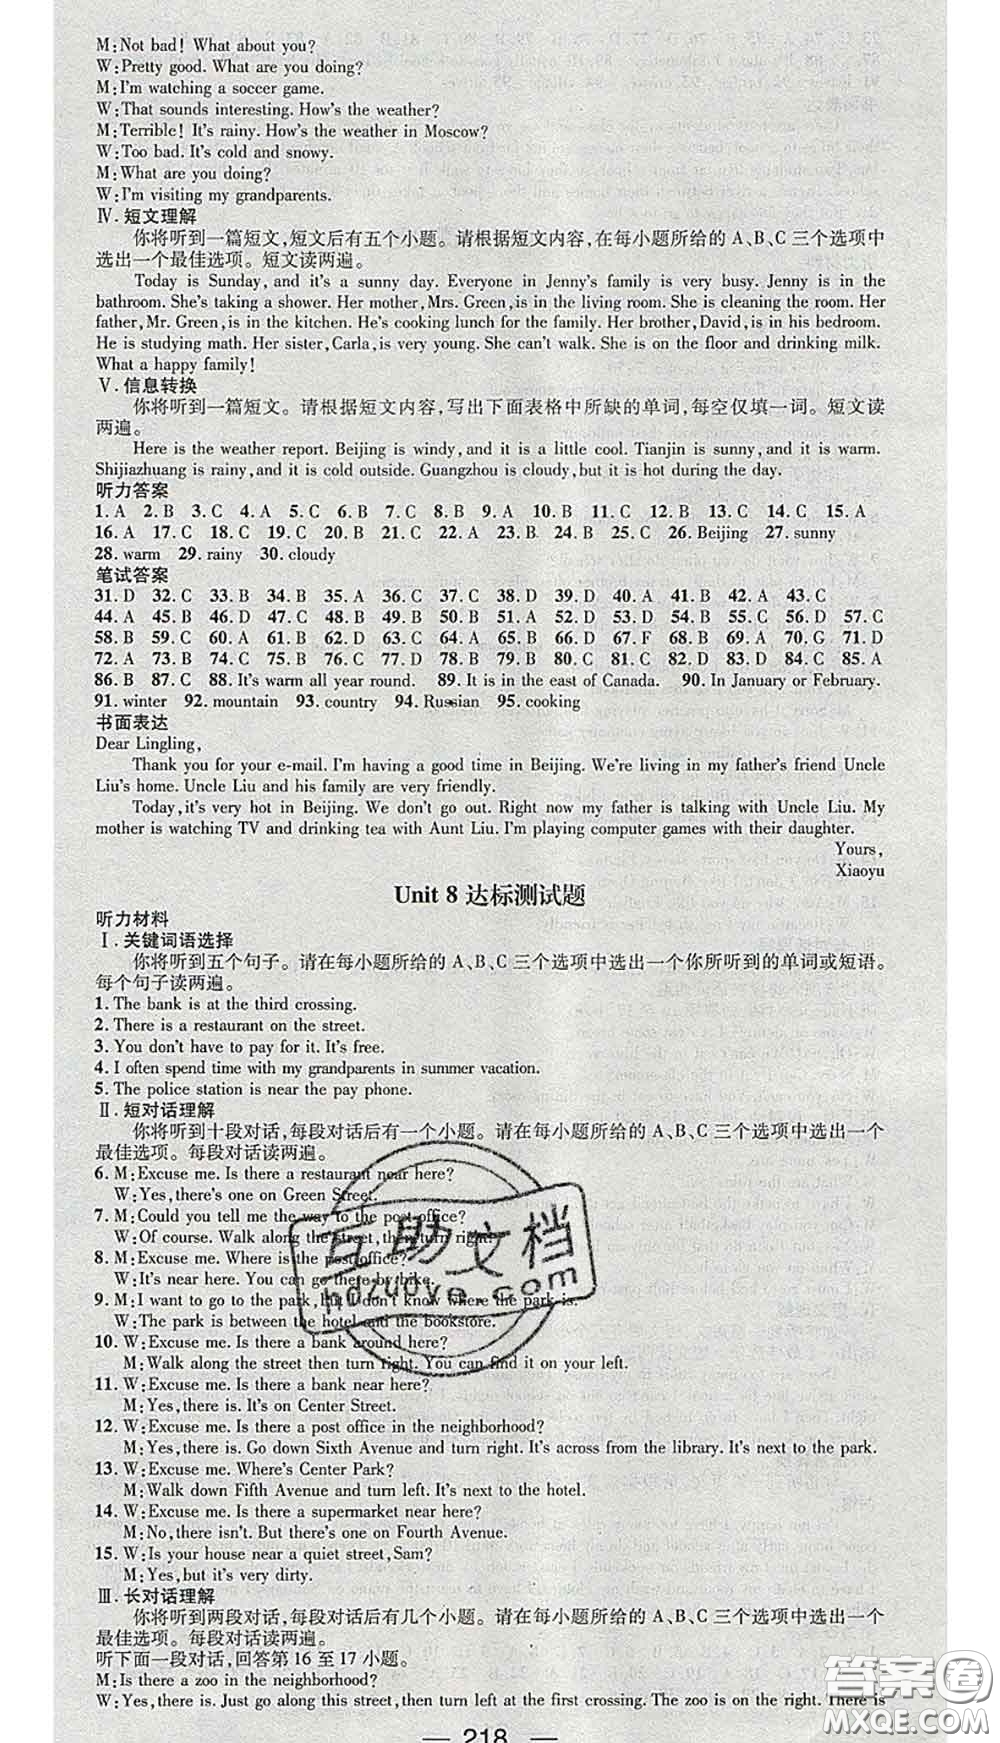 M:Not bad! What about you?
W:Pretty good. What are you doing?
M:I'm watching a soccer game.
W:That sounds interesting. How's the weather?
M:Terrible! It's rainy. How's the weather in Moscow?
W:Too bad. It's cold and snowy.
M:What are you doing?
W:I'm visiting my grandparents.
Ⅳ. 短文理解
你将听到一篇短文,短文后有五个小题。请根据短文内容,在每小题所给的 A、B、C 三个选项中
选出一个最佳选项。短文读两遍。
Today is Sunday, and it's a sunny day. Everyone in Jenny's family is very busy. Jenny is in the
bathroom. She's taking a shower. Her mother,Mrs. Green,is in the living room. She is cleaning the room. Her
father,Mr. Green,is in the kitchen. He's cooking lunch for the family. Her brother,David,is in his bedroom.
He is studying math. Her sister,Carla,is very young. She can't walk. She is on the floor and drinking milk.
What a happy family!
Ⅴ. 信息转换
你将听到一篇短文。请根据短文内容,写出下面表格中所缺的单词,每空仅填一词。短文读
两遍。
Here is the weather report. Beijing is windy,and it is a little cool. Tianjin is sunny,and it is warm.
Shijiazhuang is rainy,and it is cold outside. Guangzhou is cloudy,but it is hot during the day.
听力答案
1. A 2. B 3. C 4. A 5. C 6. B 7. C 8. B 9. A 10. B 11. C 12. B 13. C 14. C 15. A
16. A 17. C 18. C 19. C 20. B 21. C 22. A 23. B 24. B 25. C 26. Beijing 27. sunny
28. warm 29. rainy 30. cloudy
笔试答案
31. D 32. C 33. B 34. B 35. A 36. C 37. C 38. D 39. D 40. A 41. B 42. A 43. C
44. A 45. B 46. D 47. C 48. C 49. B 50. B 51. A 52. D 53. D 54. B 55. D 56. D 57. C
58. B 59. C 60. A 61. B 62. D 63. C 64. A 65. D 66. D 67. F 68. B 69. A 70. G 71. D
72. A 73. B 74. C 75. B 76. C 77. D 78. B 79. B 80. C 81. C 82. D 83. D 84. C 85. A
86. B 87. C 88. It's warm all year round. 89. It is in the east of Canada. 90. In January or February.
91. winter 92. mountain 93. country 94. Russian 95. cooking
书面表达
Dear Lingling,
Thank you for your e-mail. I'm having a good time in Beijing. We're living in my father's friend Uncle
Liu's home. Uncle Liu and his family are very friendly.
Today,it's very hot in Beijing. We don't go out. Right now my father is talking with Uncle Liu. My
mother is watching TV and drinking tea with Aunt Liu. I'm playing computer games with their daughter.
Yours,
Xiaoyu
Unit 8 达标测试题
听力材料
Ⅰ. 关键词语选择
你将听到五个句子。请在每小题所给的 A、B、C 三个选项中选出一个你所听到的单词或短语。
每个句子读两遍。
1. The bank is at the third crossing.
2. There is a restaurant on the street.
3. You don't have to pay for it. It's free.
4. I often spend time with my grandparents in summer vacation.
5. The police station is near the pay phone.
Ⅱ. 短对话理解
你将听到十段对话,每段对话后有一个小题。请在每小题所给的 A、B、C 三个选项中选出一个
最佳选项。每段对话读两遍。
6. M:Excuse me. Is there a restaurant near here?
W:Yes,there's one on Green Street.
7. M:Could you tell me the way to the post office?
W:Of course. Walk along the street,then turn right.
8. M:Excuse me. Where is the post office?
W:It's near here. You can go there by bike.
9. M:I want to go to the park,but I don't know where the park is.
W:The park is between the hotel and the bookstore.
10. W:Excuse me. Is there a bank around here?
M:Walk along the street then turn right. You can find it on your left.
11. W:Excuse me. Is there a bank near here?
M:Yes, there is. It's on Center Street.
12. W:Excuse me. Is there a post office in the neighborhood?
M:Yes,there is. Go down Sixth Avenue and turn right. It's across from the library. It's next to the park.
13. W:Excuse me. Where's Center Park?
M:Walk down Fifth Avenue and turn left. It's next to the hotel.
14. W:Excuse me. Is there a supermarket near here?
M:No,there isn't. But there's one on Fourth Avenue.
15. W:Is your house near a quiet street,Sam?
M:Yes,but it's very dirty.
Ⅲ. 长对话理解
你将听到两段对话,每段对话后有几个小题。请在每小题所给的 A、B、C 三个选项中选出一个
最佳选项。每段对话读两遍。
听下面一段对话,回答第 16 至 17 小题。
M:Is there a zoo in the neighborhood?
W:Yes,there is. Just go along this street,then turn left at the first crossing. The zoo is on the right. There is
— 218 —
互助文档
hdzuoye.com
答案圈
MXQE.COM